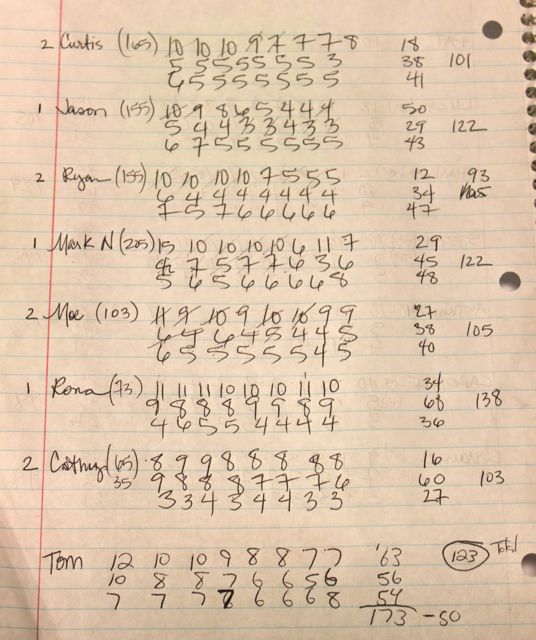 2 Curtis (165) 10 10 10 9 7 7 7 8 18
5 5 5 5 5 5 5 3 38 101
6 5 5 5 5 5 5 5 41
1 Jason (155) 10 9 8 6 5 4 4 4 50
5 4 4 3 3 4 3 3 29 122
6 7 5 5 5 5 5 5 43
2 Ryan (155) 10 10 10 10 7 5 5 5 12 93
6 4 4 4 4 4 4 4 34
7 5 7 6 6 6 6 6 47
1 Mark N (205) 15 10 10 10 10 6 11 7 29
7 5 7 7 6 3 6 45 122
5 6 5 6 6 6 6 8 48
2 Moe (103) 11 9 10 9 10 10 9 9 27
6 4 6 4 5 4 4 5 38 105
6 5 5 5 5 5 4 5 40
1 Rona (73) 11 11 11 10 10 10 11 10 34
9 8 8 8 9 9 8 9 68 138
4 6 5 5 4 4 4 4 36
2 Cathy (65) 8 9 9 8 8 8 8 8 16
35 9 8 8 8 7 7 7 6 60 103
3 3 4 3 4 4 3 3 27
Tom 12 10 10 9 8 8 7 7 63 123 Total
10 8 8 7 6 6 5 6 56
7 7 7 8 6 6 6 8 54
173 - 50